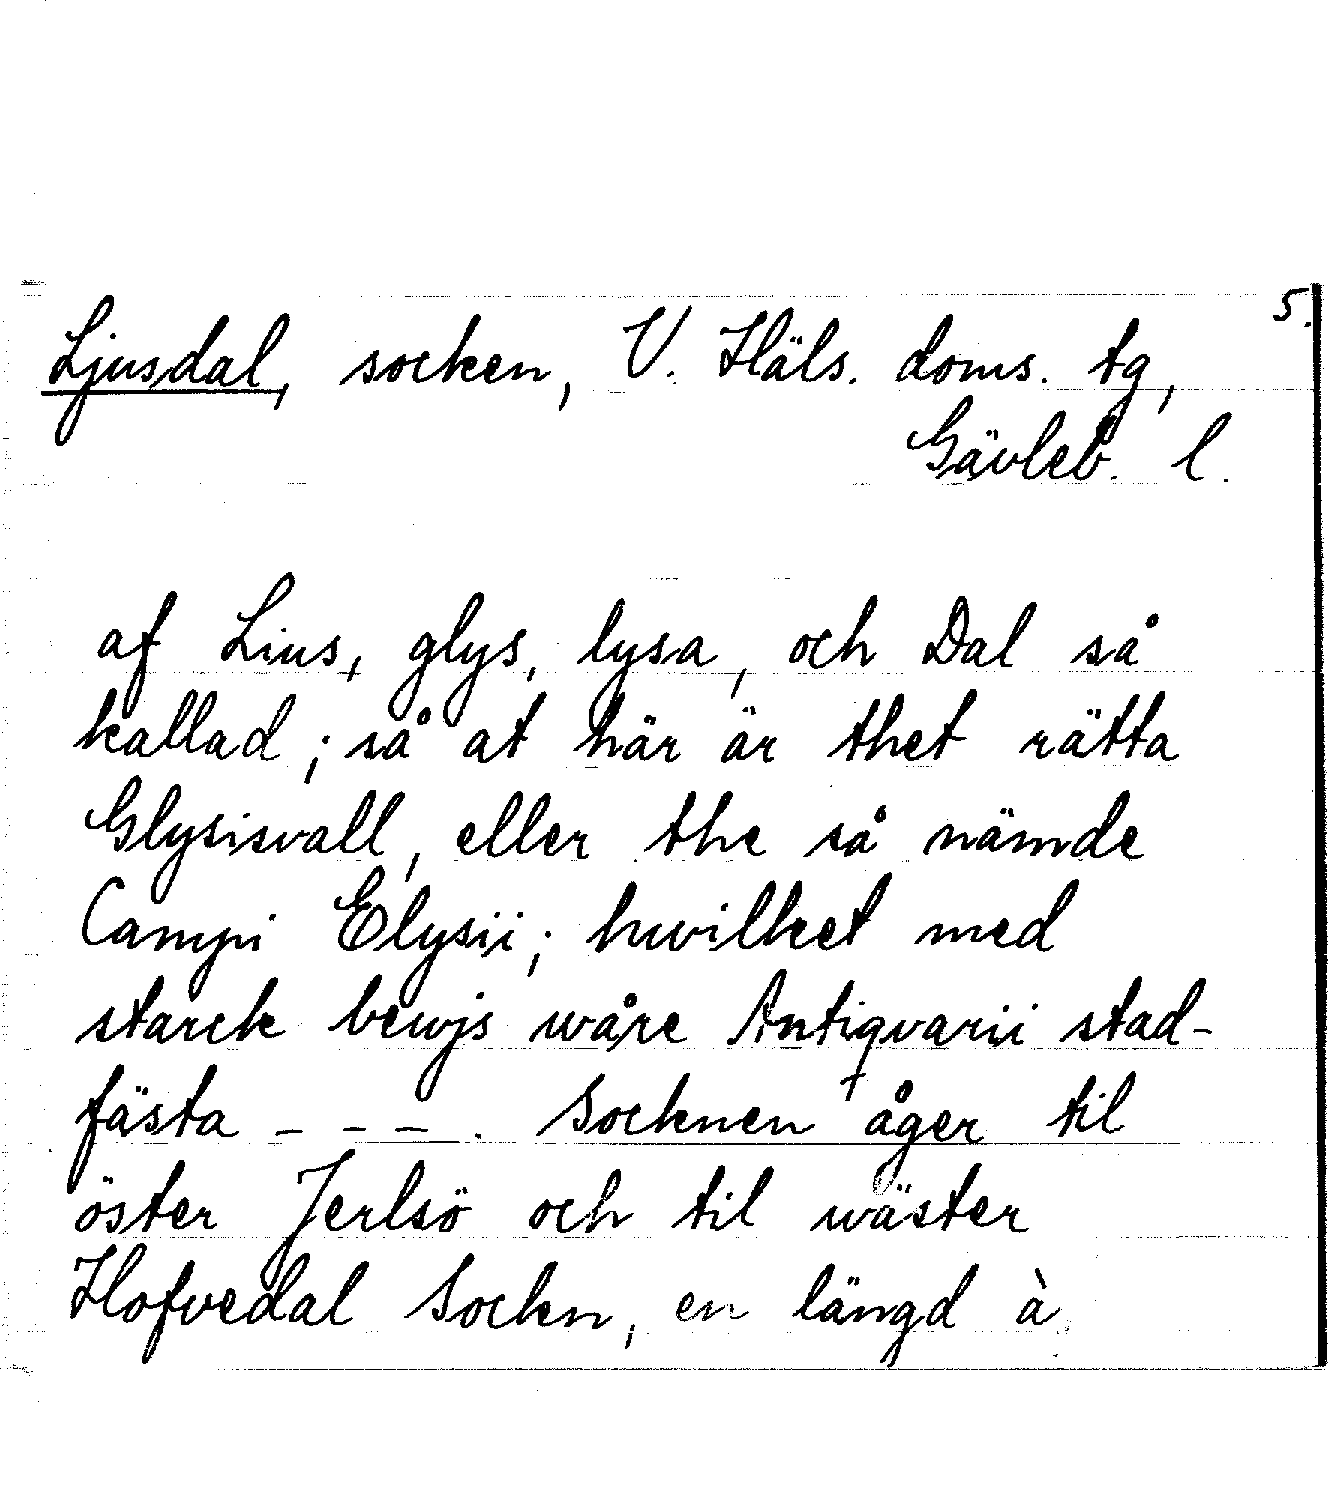 5.
Ljusdal, socken, V. Häls. doms. tg,
Gävleb. l.
af Lius, glys, lysa, och Dal så
kallad; så at här är thet rätta
Glysisvall, eller the så nämde
Campi Elysii; hwilket med
starck bewjs wåre Antiqvarii stad-
fästa - - - . Socknen åger til
öster Jerlsö och til wäster
Hofvedal Sockn, en längd à